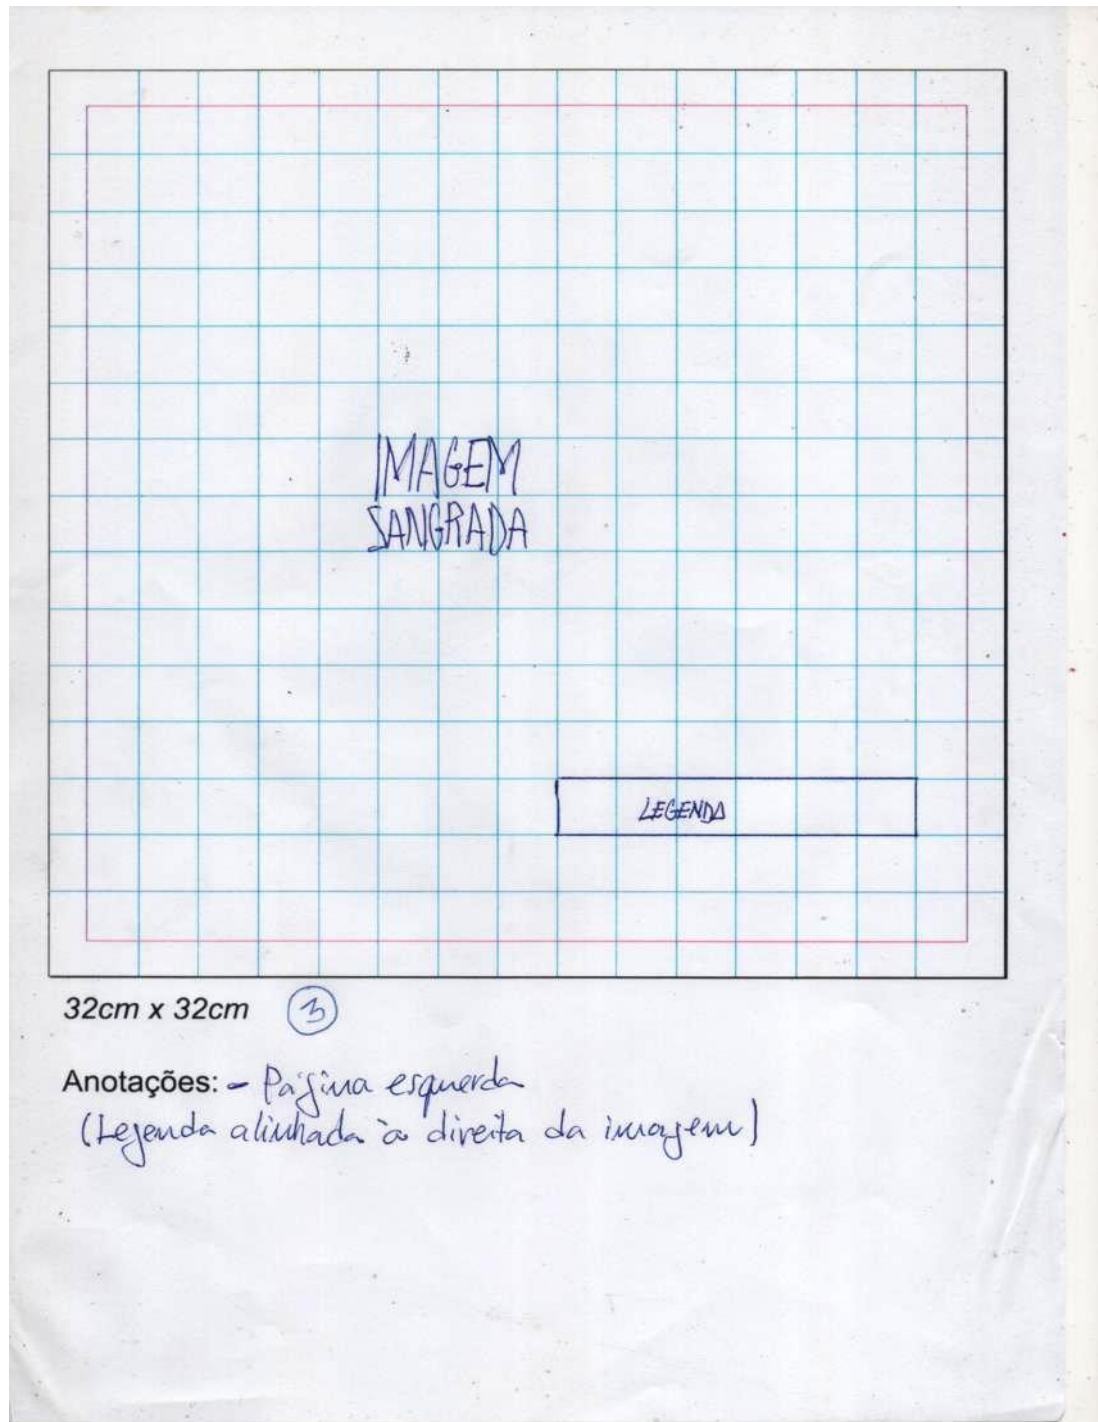 IMAGEM
SANGRADA
LEGENDA
32cm x 32cm 3
Anotações: - Página esquerda
(Legenda alinhada à direita da imagem)